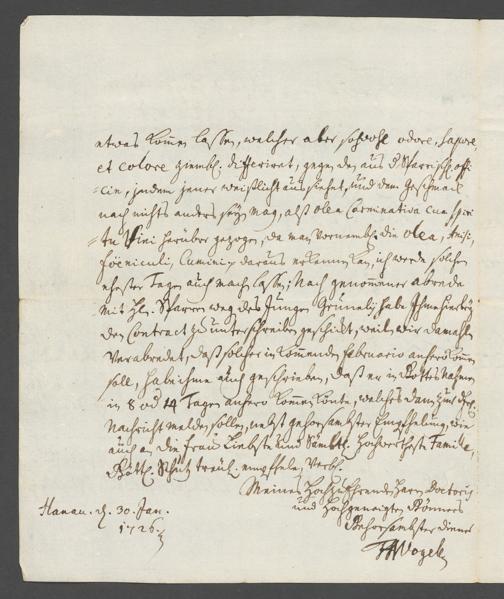 etwas komen lassen, welcher aber sowohl odore, sapore,
et colore ziembl. differiret, gegen den aus d. Sparrisch. offi-
cin, indem jener weißlicht aussiehet, und dem geschmack
nach nichts anders seyn mag, alß olea Carminativa cum spiri-
tu Vini herüber gezogen, da man vornembl. die olea, Anisi,
foeniculi, Cumini, daraus erkennen kan, ich werde solchen
ehester Tagen auch machen lassen; Nach genommener abrede
mit H. Sparren weg. des Jungen habe Ihme hierbey
den Contract zu unterschreiben geschickt, weilen wir damahls
verabredet, daß solcher in kommenden februario anhero kommen
soll, habe ihme auch geschrieben, daß er in Gottes Nahmen
in 8 od. 14 Tagen anhero kommen könte, welches dann zur
Nachricht melden sollen, nebst gehorsambster Empfehlung, wie
auch a. die frau Liebste und Sämbtl. hochwertheste Familie,
Göttl. Schutz treul. empfehlen, Verbl.
Meines HochzuEhrenden Herrn Doctoris
und Hochgeneigten Gönners
Hanau. d. 30. Jan.
Gehorsambster diener
1726.
Vogel